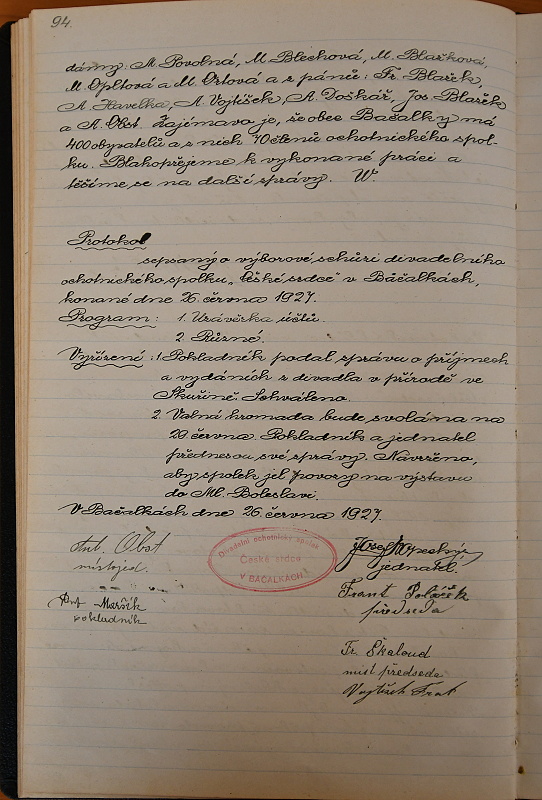 94.
dámy: M. Povolná, M. Blechová, M. Blažková,
M. Opltová a M. Orlová a z pánů: Fr. Blažek,
A. Havelka, A. Vojtíšek, A. Doškář, Jos. Blažek
a A. Obst. Zajímavo je, že obec Bačalky má
400 obyvatelů a z nich 70 členů ochotnického spol-
ku. Blahopřejeme k vykonané práci a
těšíme se na další zprávy. W.
Protokol
sepsaný o výborové schůzi divadelního
ochotnického spolku „České srdce" v Bačalkách,
konané dne 26. června 1927.
Program: 1. Uzávěrka účtů.
2. Různé.
Vyřízení: 1. Pokladník podal zprávu o příjmech
a vydáních z divadla v přírodě ve
Skuřině. Schváleno.
2. Valná hromada bude svolána na
29 června. Pokladník a jednatel
přednesou své zprávy. Navrženo,
aby spolek jel povozy na výstavu
do Ml. Boleslavi.
V Bačalkách dne 26. června 1927.
Ant. Obst
místojed.
Divadelní ochotnický spolek
České srdce
V BAČALKÁCH
Josef
jednatel.
Frant Poláček
předseda
Maršík
pokladník
Fr. Škaloud
míst předseda
Vojtíšek Frat